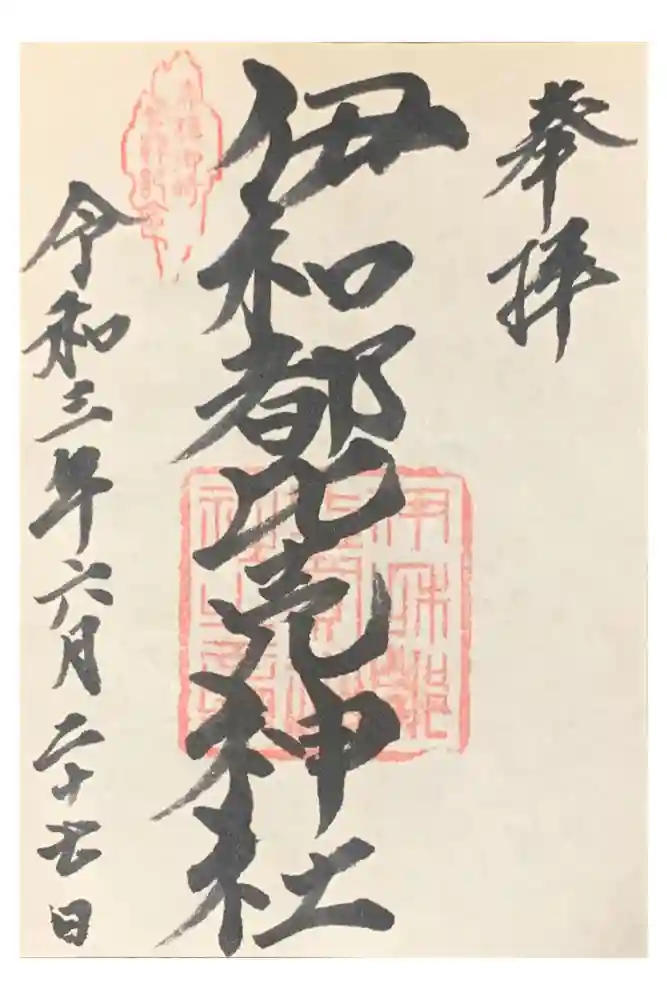 奉拝
伊和都比売神社
令和三年六月二十七日